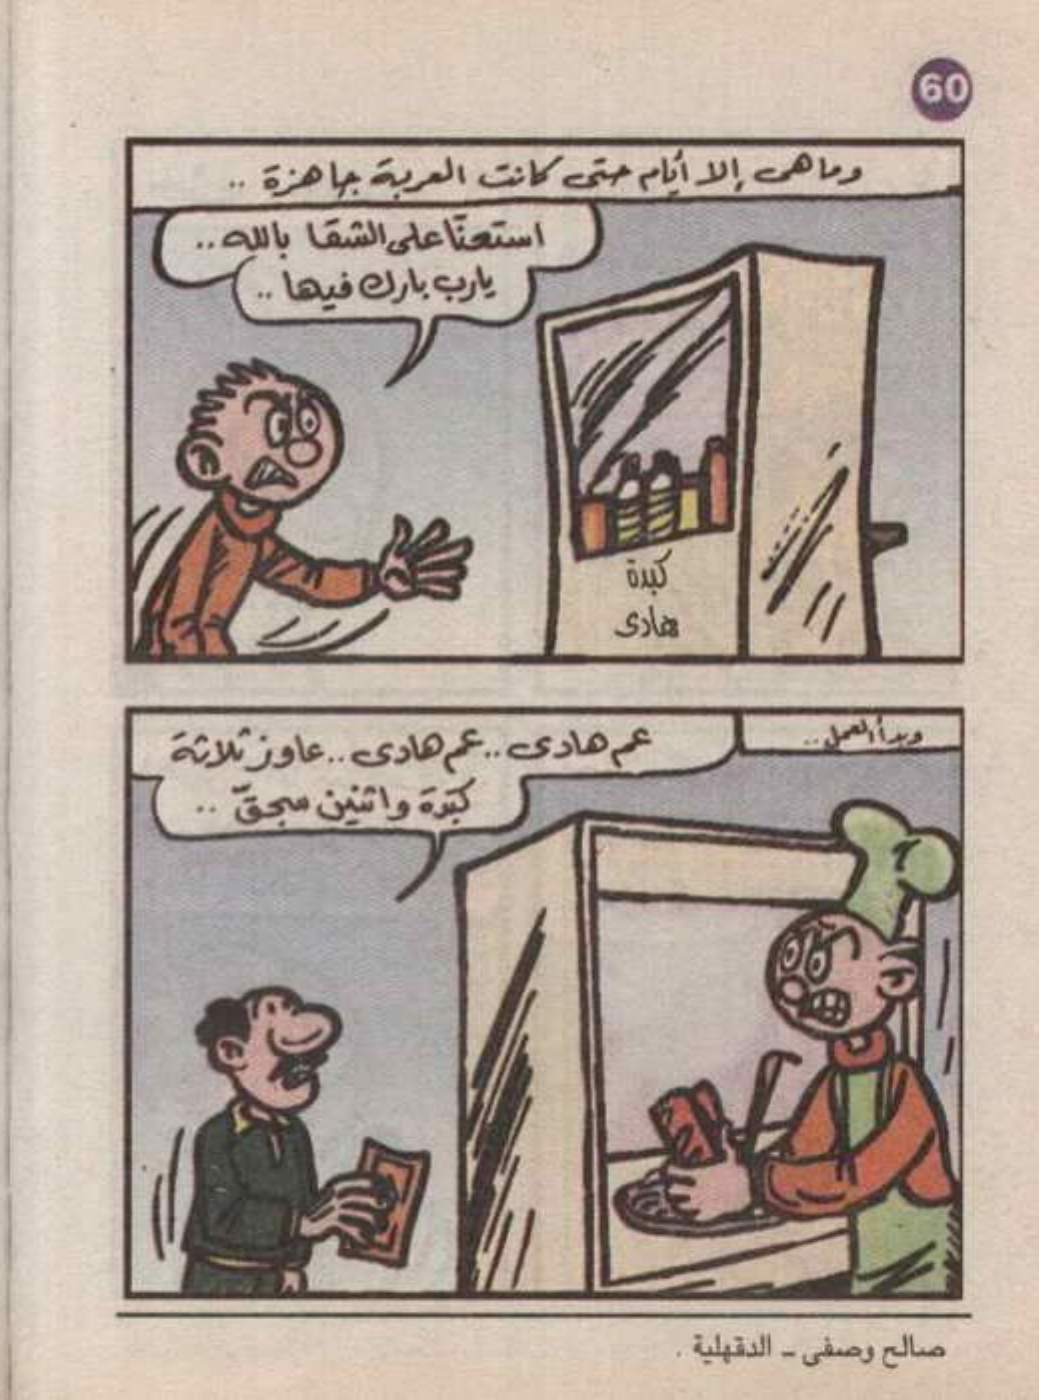 60
وما هى إلا أيام حتى كانت العربة جاهزة ..
استعنّا على الشقا بالله ..
يارب بارك فيها ..
كبدة
هادى
وبدأ العمل ..
عم هادى .. عم هادى .. عاوز ثلاثة
كبدة واثنين سجقّ ..
صالح وصفى - الدقهلية .